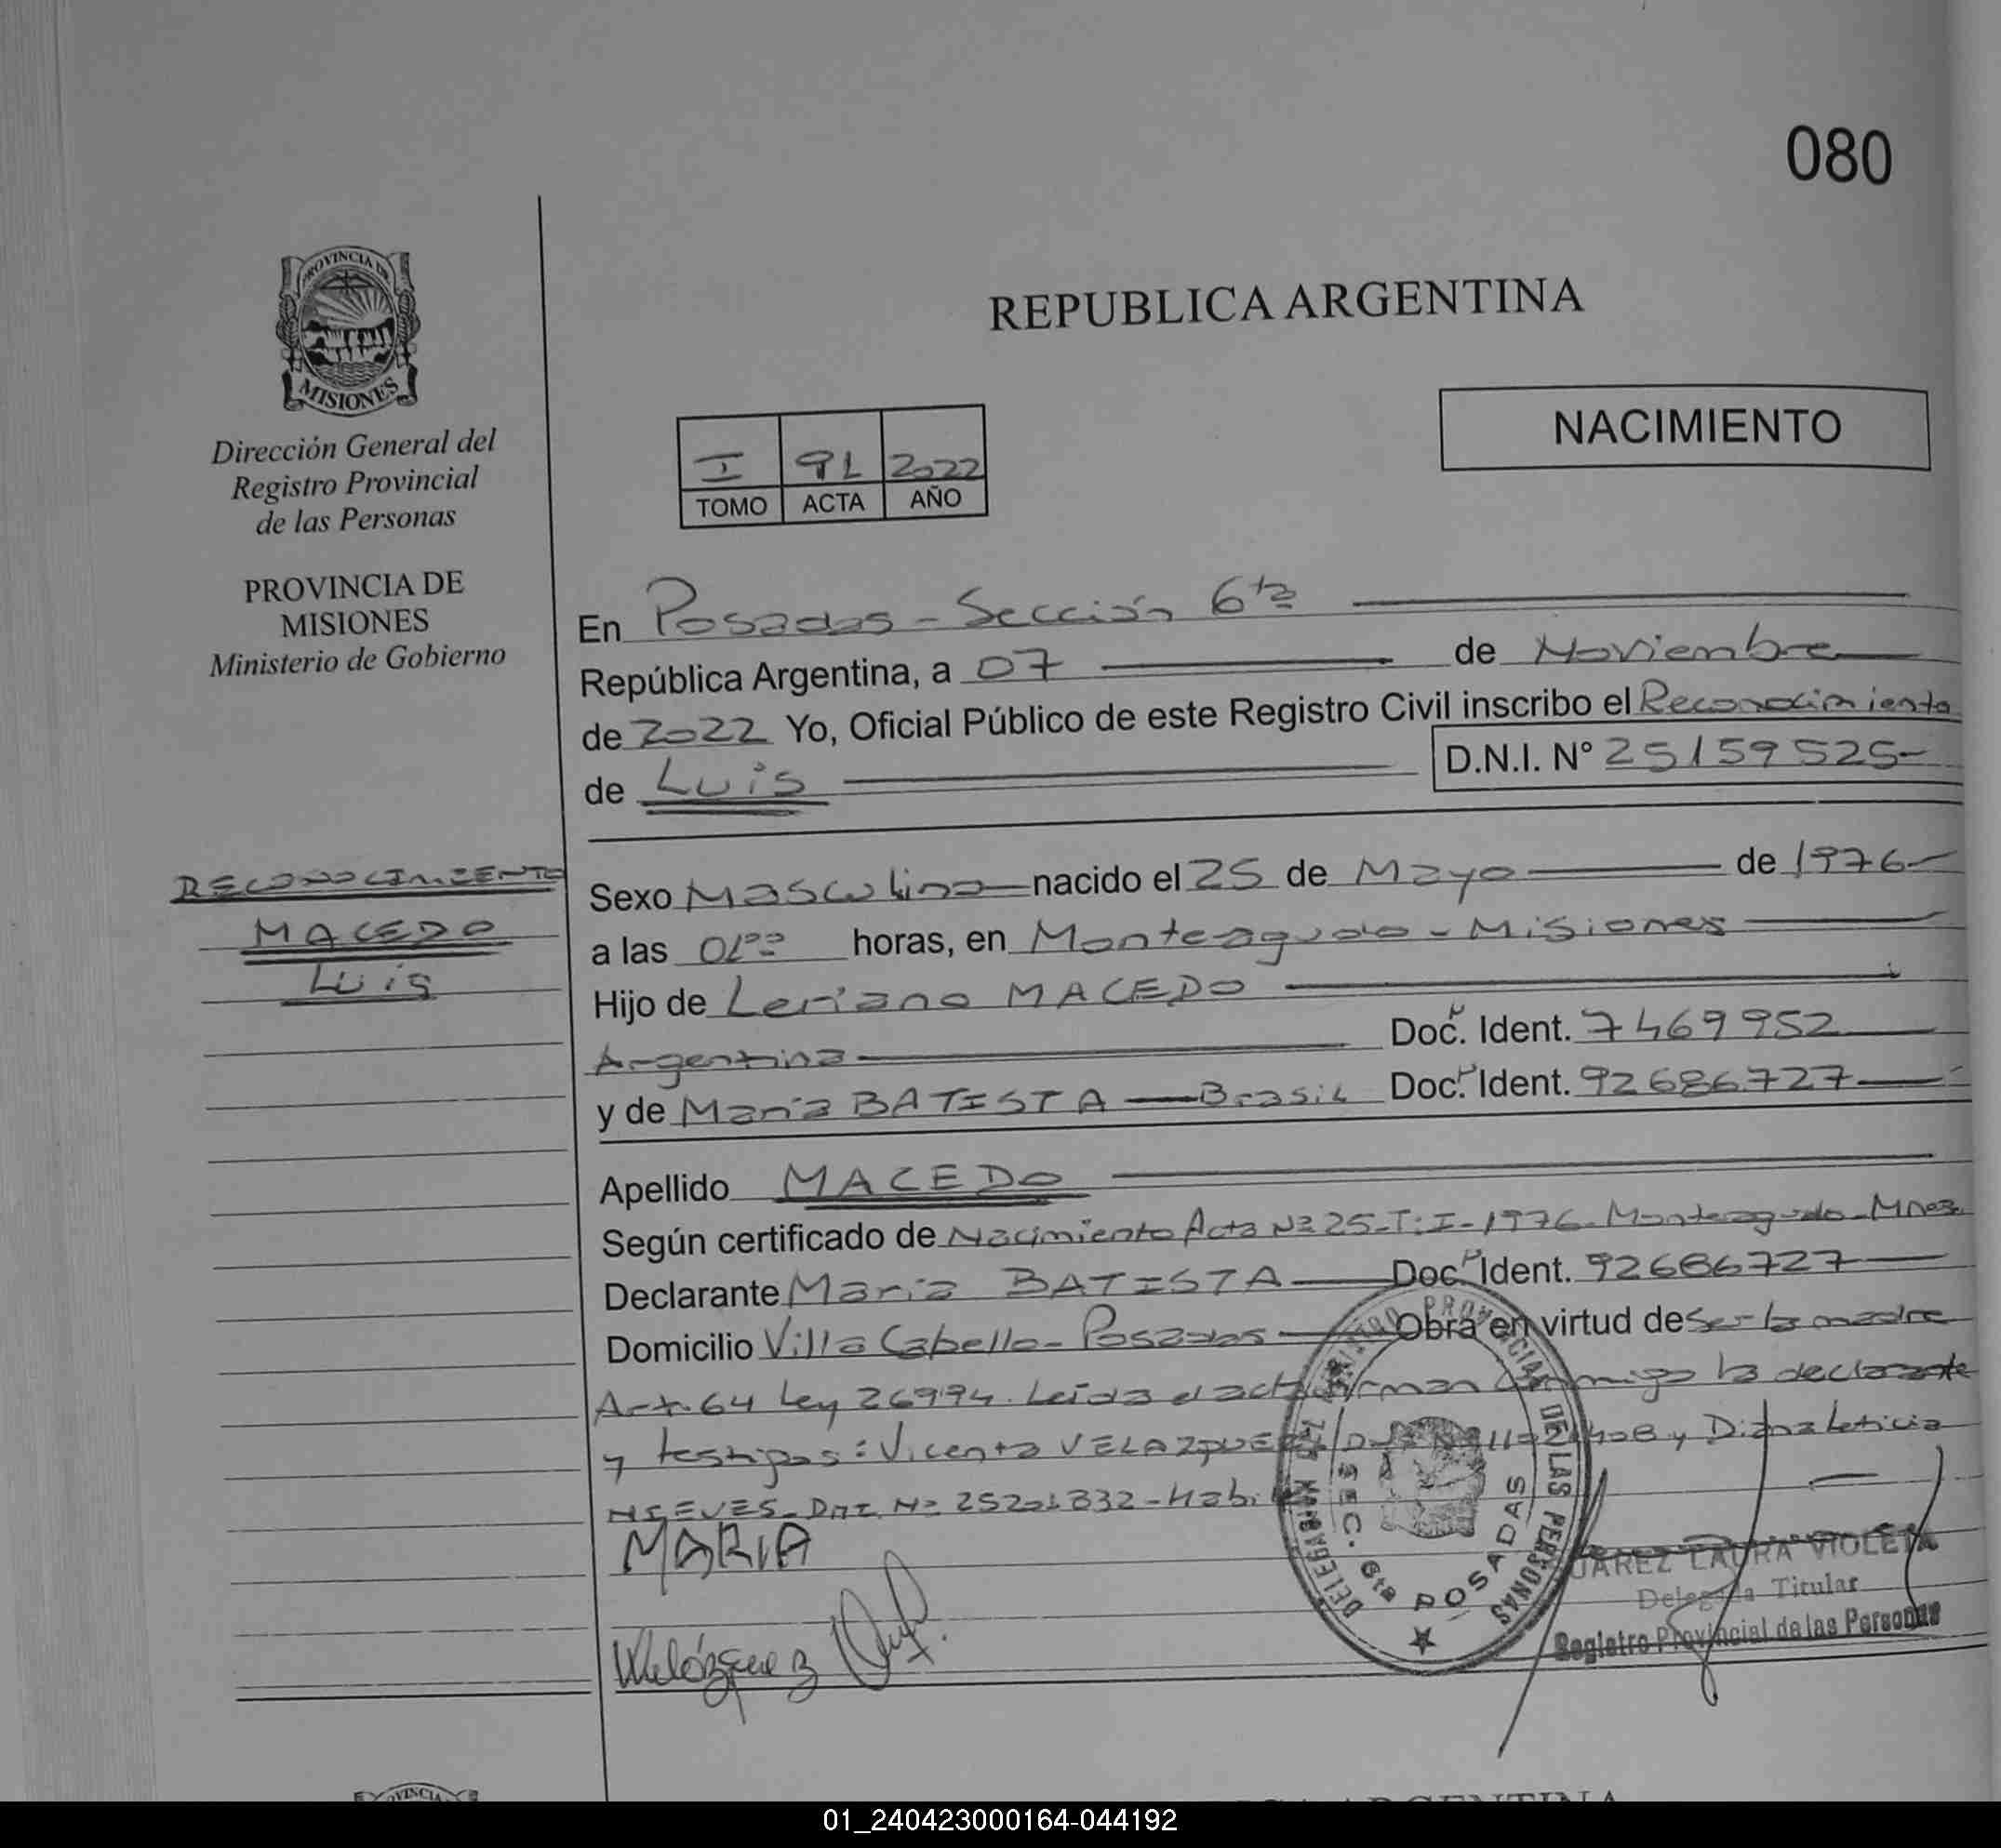 080
PROVINCIA DE
MISIONES
Dirección General del
Registro Provincial
de las Personas
PROVINCIA DE
MISIONES
Ministerio de Gobierno
REPUBLICA ARGENTINA
NACIMIENTO
I 91 2022
TOMO ACTA AÑO
En Posadas - Sección 6ta
República Argentina, a 07 de Noviembre
de 2022 Yo, Oficial Público de este Registro Civil inscribo el Reconocimiento
de Luis D.N.I. Nº 25159525-
RECONOCIMIENTO
MACEDO
Luis
Sexo Masculino nacido el 25 de Mayo de 1976-
a las 01ºº horas, en Monteagudo - Misiones
Hijo de Leriano MACEDO
Argentina Doc. Ident. 7469952
y de María BATISTA - Brasil Doc. Ident. 92686727
Apellido MACEDO
Según certificado de Nacimiento Acta Nº 25-T:I-1976-Monteagudo-Mnes.
Declarante María BATISTA Doc. Ident. 92686727
Domicilio Villa Cabello - Posadas Obra en virtud de ser la madre
Art. 64 Ley 26994. Leída el acta firman conmigo la declarante
y testigos: Vicenta VELAZQUEZ y Diana Leticia
NIEVES - DNI Nº
MARIA
Velázquez
DELEGACION REGISTRO PROVINCIAL DE LAS PERSONAS
SEC. 6ta POSADAS
LAURA VIOLETA
Delegada Titular
Registro Provincial de las Personas
01_240423000164-044192